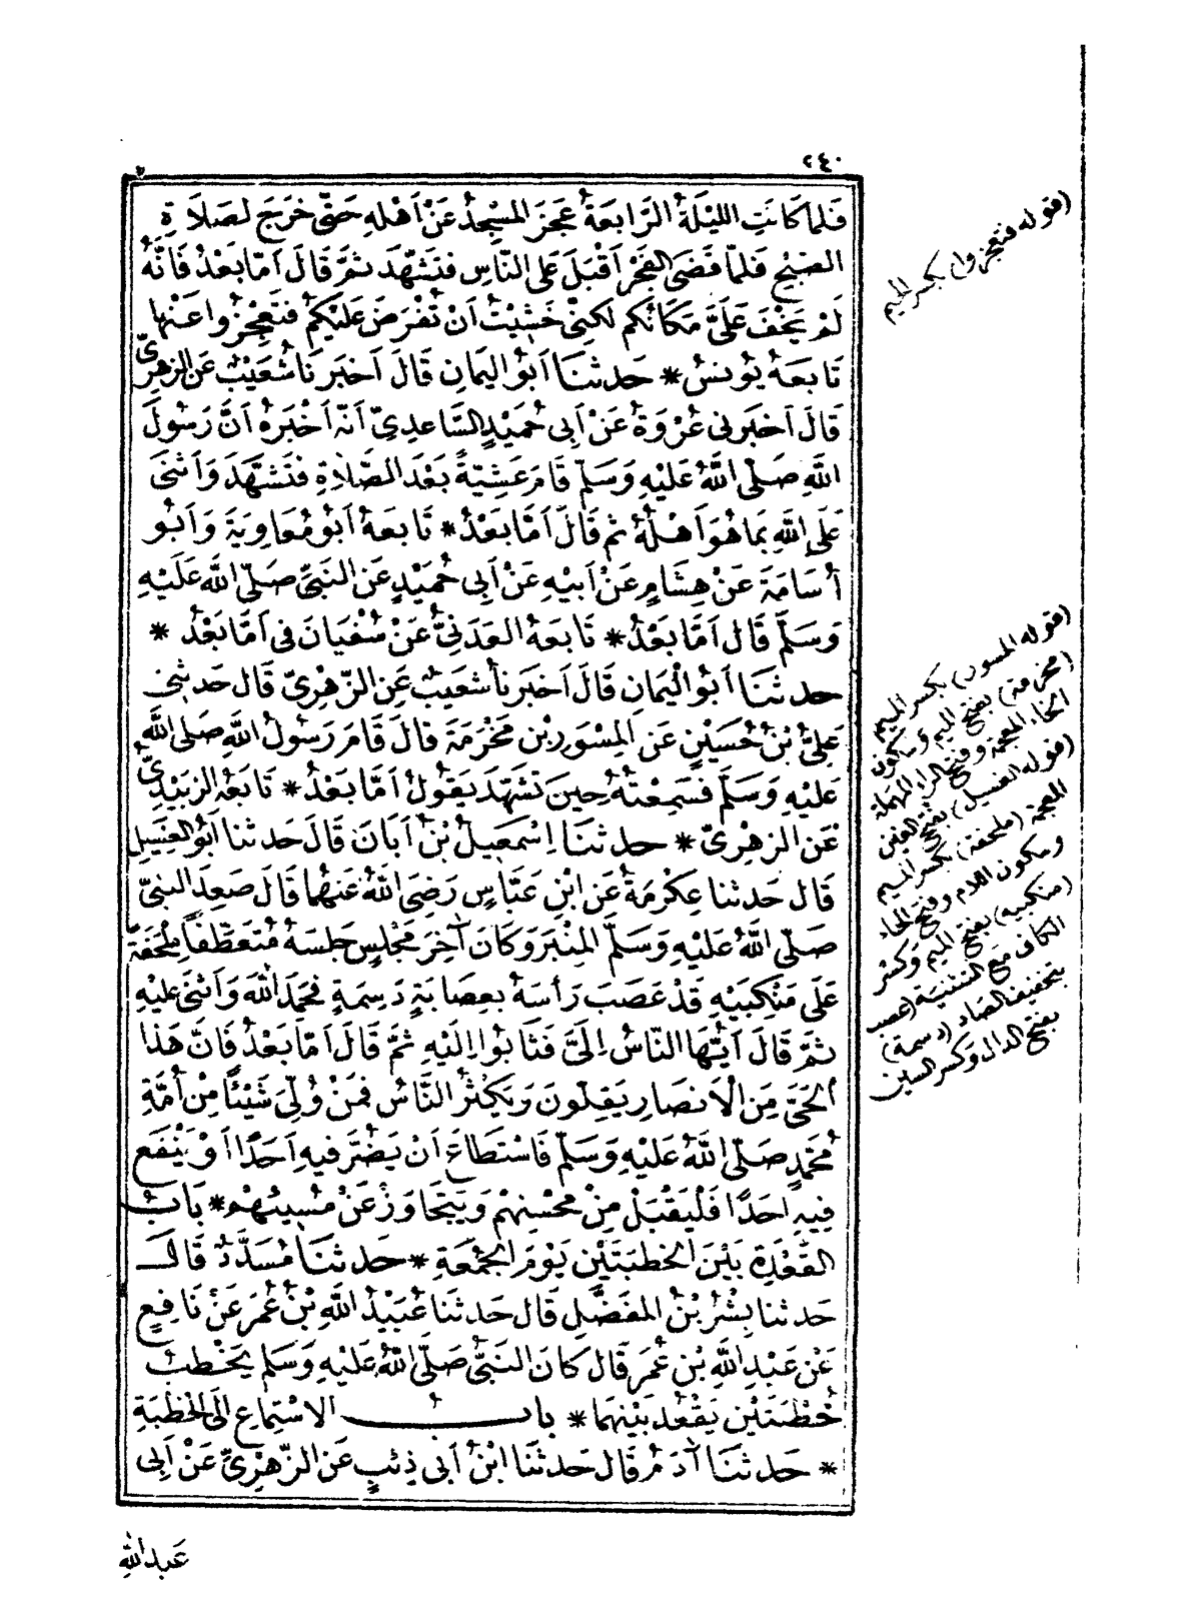 ٢٤٠
فَلَمَا كَانَتِ اللَّيْلَةُ الرَّابِعَةُ عَجَزَ المَسْجِدُ عَنْ اَهْلِهِ حَتّٰى خَرَجَ لِصَلَاةِ
الصُبْحِ فَلَمَّا قَضَى الفَجْرَ اَقْبَلَ عَلَى النَّاسِ فَتَشَهَّدَ ثمَّ قَالَ اَمَّا بَعْدُ فَاِنَّهُ
لَمْ يَخْفَ عَلَىَّ مَكَانُكم لَكِنِّى خَشِيْتُ اَنْ تُفْرَضَ عَلَيْكُمْ فَتَعْجِزُوا عَنْهَا
تَابَعَهُ يُونسُ * حَدثنَا اَبُو اليَمَانِ قَالَ اَخبَرَنَا شُعَيْبٌ عَن الزهرِىِّ
قَالَ اَخبَرنى عُرْوَةُ عَنْ اَبِى حُمَيْدٍ السَّاعدِىِّ اَنَّه اَخْبَرَهُ اَنَّ رَسُولَ
اللَّهِ صَلّى اللَّهُ عَلَيْهِ وَسَلّمَ قَامَ عَشِيّةً بَعْدَ الصَّلَاةِ فَتَشَهَّدَ وَاَثْنَى
عَلَى اللَّهِ بمَا هُوَ اَهْلُهُ ثم قَالَ اَمَّا بَعْدُ * تَابَعَهُ اَبُو مُعَاوِيَةَ وَاَبُو
اُسَامَةَ عَنْ هِشَامٍ عَنْ اَبِيْهِ عَنْ اَبِى حُمَيْدٍ عَن النَبِىِّ صَلّى اللَّهُ عَلَيْهِ
وَسَلَّمَ قَالَ اَمَّا بَعْدُ * تَابَعَهُ العَدَنِىُّ عَنْ سُفْيَانَ فى اَمَّا بَعْدُ *
حدثنَا اَبُو اليَمَانِ قَالَ اَخبَرَنا شُعَيبٌ عَنِ الزّهْرِىِّ قَالَ حَدثنِى
عَلِىُّ بْنُ حُسَيْنٍ عَنِ المِسْوَرِ بْنِ مَخْرَمَةَ قَالَ قَامَ رَسُولُ اللَّهِ صَلّى اللَّهُ
عَلَيْهِ وَسَلَّمَ فَسَمِعْتُهُ حِينَ تَشَهَّدَ يَقُولُ اَمَّا بَعْدُ * تَابَعَهُ الزبَيْدِىُّ
عَنِ الزهْرِىِّ * حدثنَا اِسْمٰعِيلُ بْنُ اَبَانَ قَالَ حَدثنَا ابْنُ الغَسِيلِ
قَالَ حَدثنا عِكْرمَةُ عَن ابْنِ عَبَّاسٍ رَضِىَ اللَّهُ عَنهُمَا قَالَ صَعِدَ النبىُّ
صَلّى اللَّهُ عَلَيْهِ وَسَلَّمَ المِنْبَرَ وَكَانَ آخِرَ مَجْلِسٍ جَلسَهُ مُتَعَطِّفًا مِلْحَفَةً
عَلَى مَنْكِبَيْهِ قَدْ عَصَبَ رَأسَهُ بعِصَابَةٍ دَسِمَةٍ فَحَمِدَ اللهَ وَاَثْنَى عَليْهِ
ثمَّ قَالَ اَيُّهَا النّاسُ اِلَىَّ فَثَابُوا اِلَيْهِ ثُمَّ قَالَ اَمّا بَعْدُ فَاِنَّ هَذَا
الحَىَّ مِنَ الْاَنصَارِ يَقِلّونَ وَيَكْثرُ النَّاسُ فَمَنْ وُلِّىَ شَيْئًا مِنْ اُمَّةِ
مُحَمّدٍ صَلّى اللَّهُ عَلَيْهِ وَسَلّمَ فَاسْتَطَاعَ اَنْ يَضُرَّ فِيهِ اَحَدًا اَوْ يَنْفَعَ
فِيهِ اَحَدًا فَلْيَقْبَلْ مِنْ مُحْسِنِهِمْ وَيَتَجَاوَزْ عَنْ مُسِيئِهِمْ * بَابُ
القَعْدَةِ بَيْنَ الخطبَتَيْنِ يَوْمَ الجُمْعَةِ * حَدثنَا مُسَدَّدٌ قَالَ
حَدثنا بِشْرُ بْنُ المفَضَّلِ قَال حَدثنَا عُبَيْدُ اللَّهِ بْنُ عُمَرَ عَنْ نَافِعٍ
عَنْ عَبْدِ اللَّهِ بْنِ عُمَرَ قَال كَانَ النَّبِىُّ صَلَّى اللَّهُ عَلَيْهِ وَسَلم يَخْطبُ
خُطْبَتَيْنِ يَقْعُدُ بَيْنَهُمَا * بابُ الاسْتِمَاعِ اِلَى الخطْبَةِ
* حَدثنَا آدَمُ قَال حَدثنَا ابْنُ اَبى ذِئبٍ عَن الزّهْرِىِّ عَنْ اَبِى
عَبدِ اللهِ
(قوله فتعجزوا) بكسر الجيم
(قوله المسور) بكسر الميم
(مخرمة) بفتح الميم وسكون
الخاء المعجمة وفتح الراء المهملة
(قوله الغسيل) بفتح الغين
المعجمة (ملحفة) بكسر الميم
وسكون اللام وفتح الحاء
(منكبيه) بفتح الميم وكسر
الكاف مع التثنية (عصب
بتخفيف الصاد (دسمة)
بفتح الدال وكسر السين